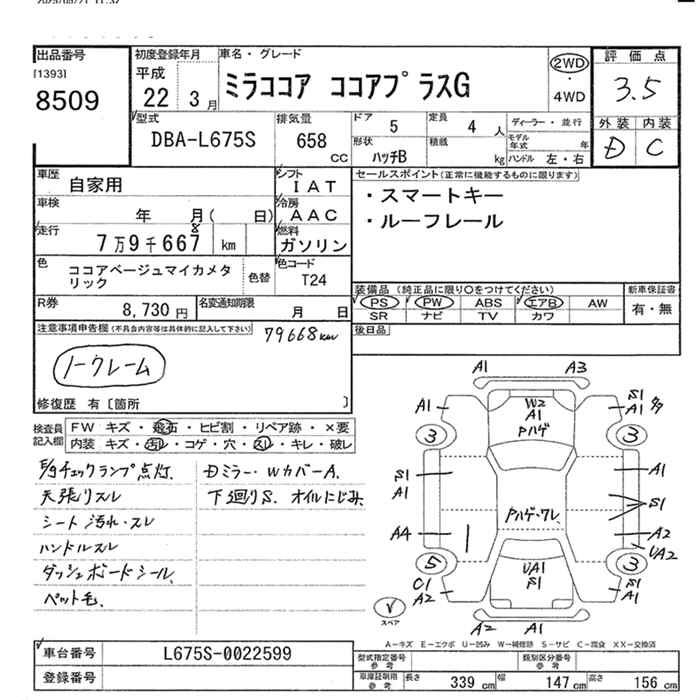 2025/08/21 11:52
出品番号
[1393]
8509
初度登録年月
平成
22 3月
車名・グレード
ミラココア ココアプラスG
2WD
・
4WD
評価点
3.5
外装 内装
D C
型式
DBA-L675S
排気量
658
CC
ドア 5
定員 4 人
形状 ハッチB
積載 kg
ディーラー・並行
モデル年式 年
ハンドル 左・右
車歴 自家用
シフト IAT
車検 年 月( 日)
冷房 AAC
走行 7万9千667 8 km
燃料 ガソリン
色 ココアベージュマイカメタリック
色替
色コード T24
R券 8,730円
名変通知期限 月 日
セールスポイント(正常に機能するものに限ります)
・スマートキー
・ルーフレール
装備品 (純正品に限り○をつけてください)
新車保証書
PS PW ABS エアB AW
SR ナビ TV カワ
有・無
後日品
注意事項申告欄(不具合内容等は具体的に記入して下さい)
79668km
ノークレーム
修復歴 有〔箇所 〕
検査員記入欄
FW キズ・飛石・ヒビ割・リペア跡・×要
内装 キズ・汚レ・コゲ・穴・スレ・キレ・破レ
E/gチェックランプ点灯、
天張リスレ
シート汚れ・スレ
ハンドルスレ
ダッシュボードシール、
ペット毛、
Dミラー・WカバーA、
下廻りS、オイルにじみ
A1 A3
A1 W2 A1 Pハゲ S1 A1
3 3
S1 A1 A1
S1
Pハゲ・ワレ
AA A2
UA2
5 3
C1 A2 UA1 S1 S1 A1
A2 A1
スペア
A-キズ E-エクボ U-凹み W-補修跡 S-サビ C-腐食 XX-交換済
車台番号 L675S-0022599
登録番号
型式指定番号 参考
類別区分番号 参考
車庫証明用 参考 長さ 339 cm 幅 147 cm 高さ 156 cm